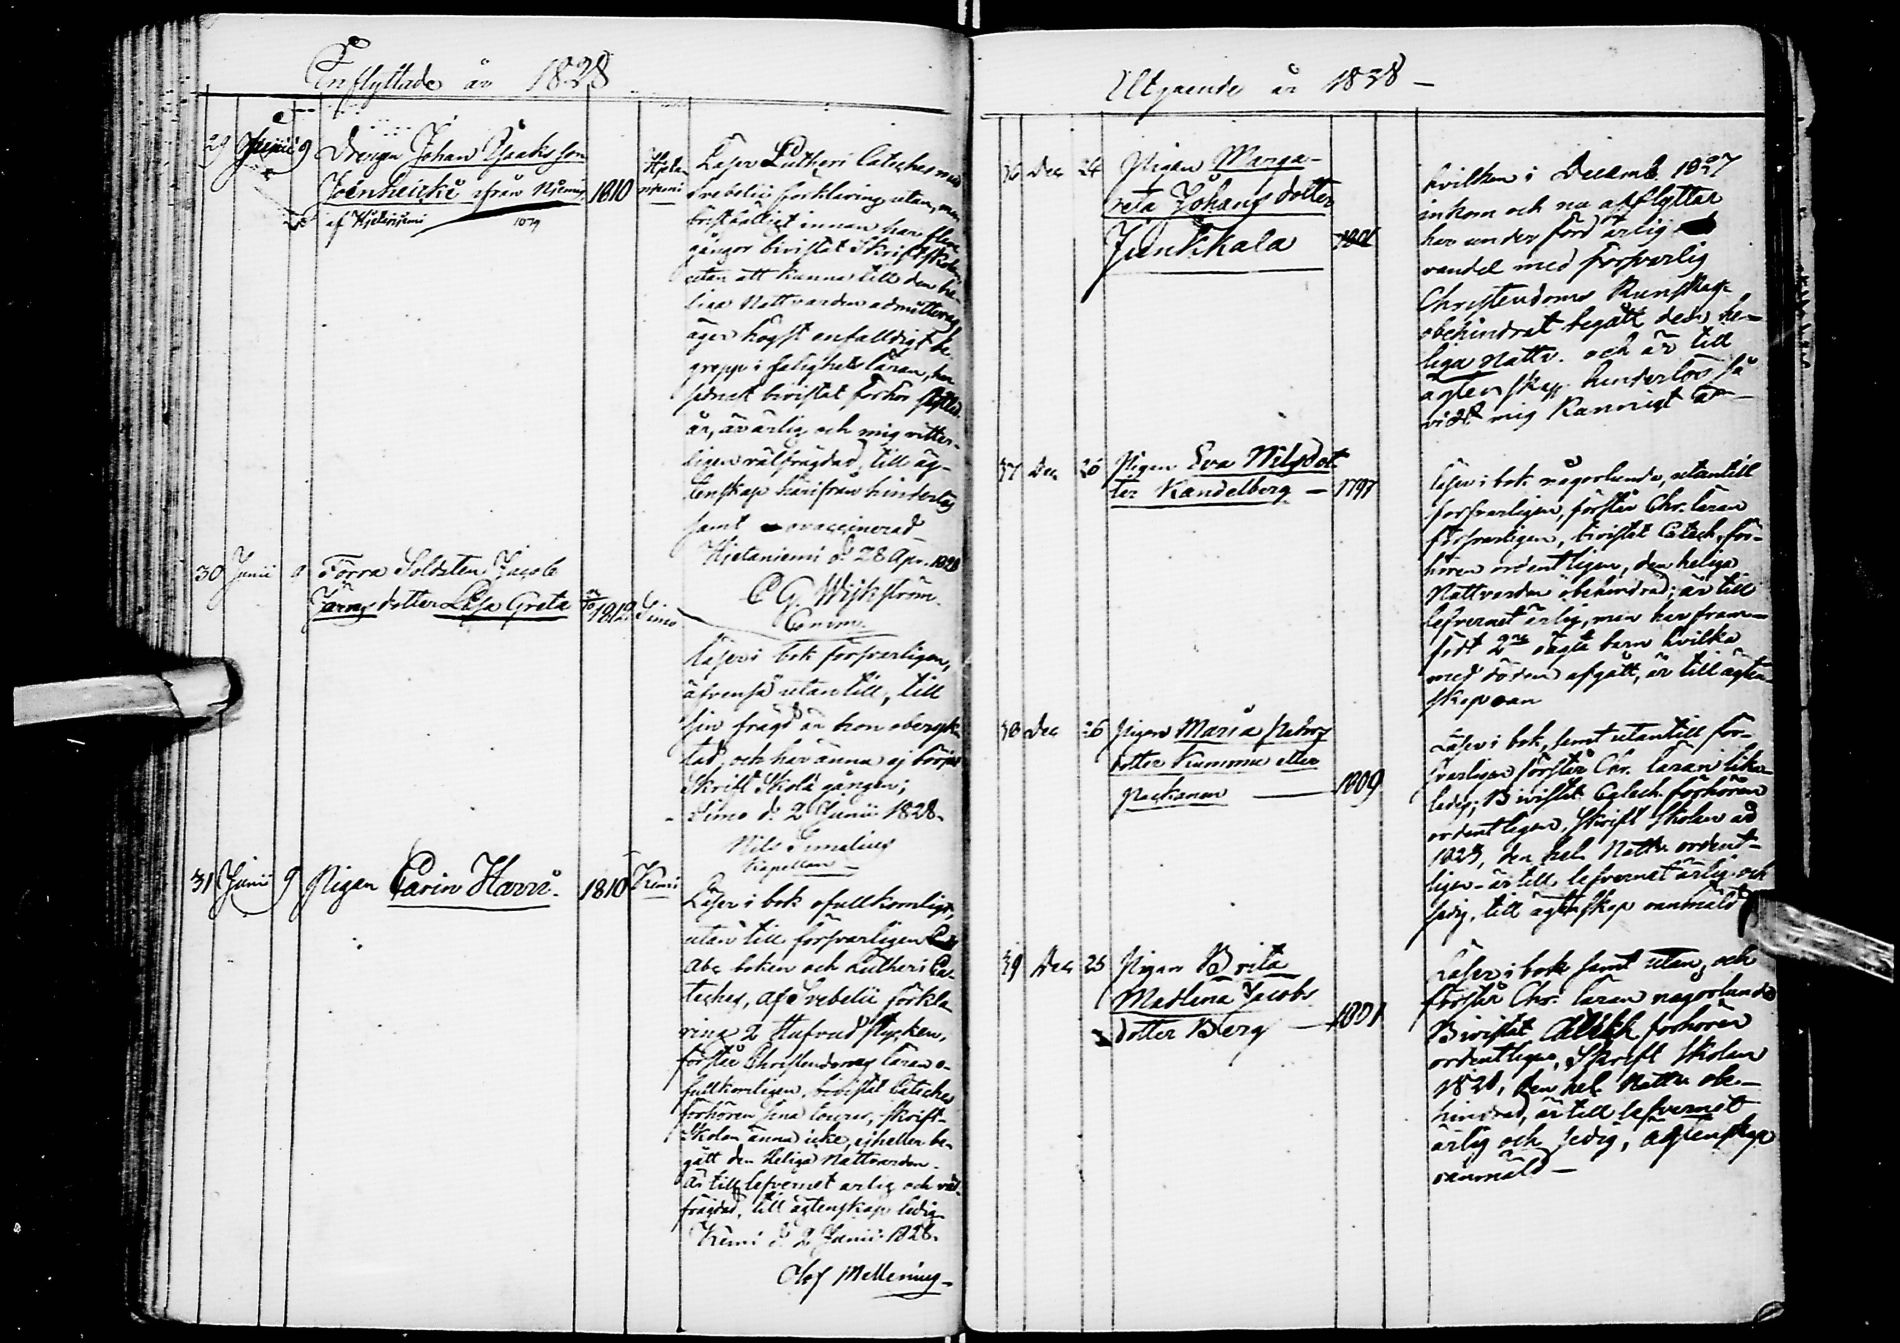 Inflyttade år 1828
29 Junii 9 Drengen Johan Isaksson
Joenheicki ifrån
af Hietaniemi
1810
Hieta-
niemi
Läser Lutheri Cateches med
Svebelii förklaring utan, men
bristfälligt innan har flere
gånger bivistat Skriftskolan
utan att kunna till den he-
liga Nattvarden admitteras
äger högst enfalldigt be-
grepp i salighets läran, har
bivistat Förhör
år, är ärlig och mig vitter-
ligen välfrägdad, till äg-
tenskap härifrån hinderlös
samt ovaccinerad
Hietaniemi d. 28 Apr. 1828
C G Wijkström
Comm.
30 Junii 9 Förra Soldaten Jacob
Järns dotter Lisa Greta
1812
Simo
Läser i bok försvarligen,
äfvenså utantill, till
sin frägd är hon oberyk-
tad, och har ännu ej börjat
Skrift Skola gången;
Simo d. 2 Junii 1828.
Nils Simelius
Kapellan
31 Junii 9 Pigan Carin Harri
1810
Kemi
Läser i bok ofullkomligt,
utan till försvarligen
Abc boken och Lutheri Ca-
teches, af Svebelii förkla-
ring 2 Hufvud stycken,
förstår Christendoms läran o-
fullkomligen, bivistat Cateches
förhören sina tourer, Skrift-
Skolan ännu icke, ejheller be-
gått den Heliga Nattvarden.
Är till lefvernet ärlig och väl-
frägdad, till ägtenskap ledig
Kemi d. 2 Junii 1828.
Olof Mellenius
Utgående år 1828
36 Dec 24 Pigan Marga-
reta Johans dotter
Junkkala
hvilken i Decemb. 1827
inkom och nu afflyttar
har under förd ärlig
vandel med försvarlig
Christendoms Kunskap
obehindrat begått den he-
liga Nattv. och är till
ägtenskap hinderlös så
vidt mig Kunnigt är
37 Dec 26 Pigan Eva Nilsdot-
ter Kandelberg
1797
Läser i bok någorlunda, utantill
försvarligen, förstår Chr. läran
försvarligen, bivistat Catech. för-
hören ordentligen, den heliga
Nattvarden obehindrad; är till
lefvernet ärlig, men har fram-
födt 2ne oägta barn hvilka
med döden afgått, är till ägten-
skap
38 Dec 26 Pigan Maria Peders
dotter Kumma eller
1809
Läser i bok, samt utantill för-
svarligen förstår Chr. läran lika-
ledes; Bivistat Catech. förhören
ordentligen, Skrift Skolan åd
1823, den hel. Nattv. ordent-
ligen - är till lefvernet ärlig och
sedig, till ägtenskap oanmäld
39 Dec 26 Pigan Brita
Madlena Jacobs
dotter Berg
1801
Läser i bok samt utan, och
förstår Chr. läran någorlunda
Bivistat Catech förhören
ordentligen, Skrift Skolan
1820, den hel. Nattv. obe-
hindrad, är till lefvernet
ärlig och sedig, ägtenskap
oanmäld